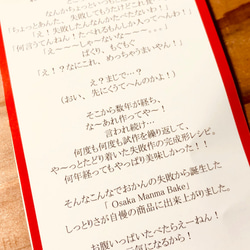 なんか、ちょっとい
「ちょっとあんた。失敗してもうたけどこれ食
「え!失敗したんなんかたべたないわ!」
「何言うてんねん!たべれるもんしか入ってへんわ!」
「えーーーしゃーないなーーー。。」
ぱくり、もぐもぐ
「え!?なにこれ、めっちゃうまいやん!」
え?まじで…?
(おい、先にくうてへんのかよ!)
そこから数年が経ち、
なーあれ作ってやー!
言われ続け…
何度も何度も試作を繰り返して、
や〜っとたどり着いた失敗作の完成形レシピ。
何年経ってもやっぱり美味しかった!!
そんなこんなでおかんの失敗から誕生した
「Osaka Manma Bake」
しっとりさが自慢の商品に出来上がりました。
お腹いっぱいたべたらえーねん!
元気になるから!